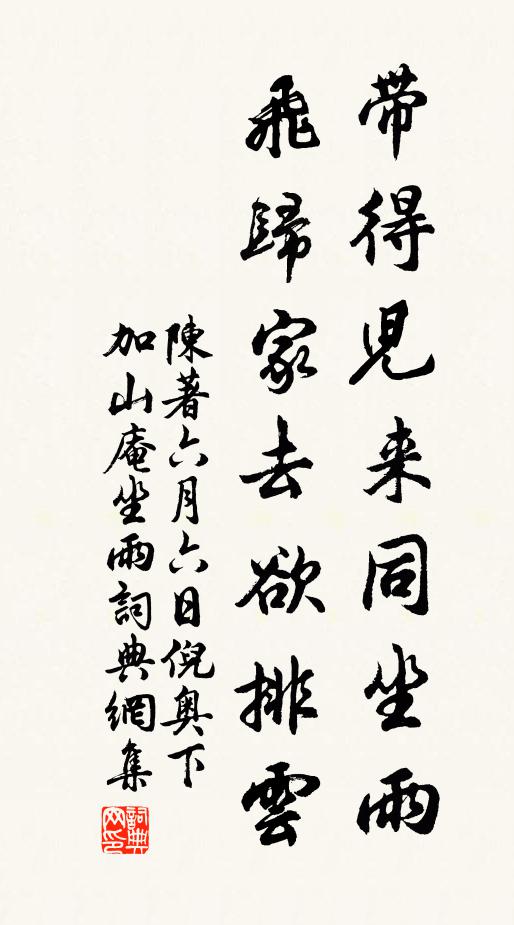 帶得児来同坐雨
飛歸家去欲排雲
陳著六月六日倪奥下
加山庵坐雨詞典網集
詞典
网印